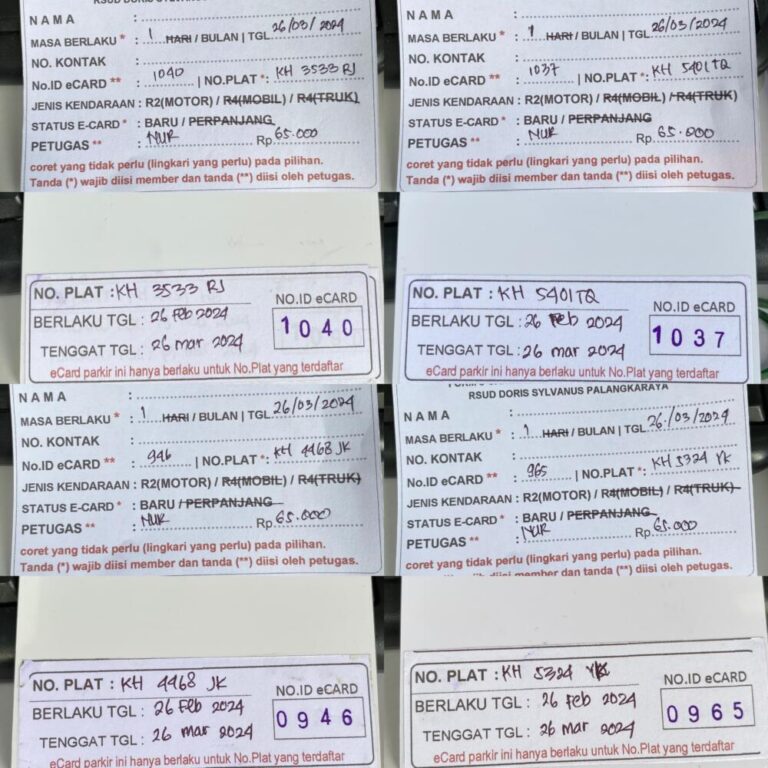 RSUD DORIS SYLVANUS
NAMA :
MASA BERLAKU * : 1 HARI / BULAN | TGL 26/03/2024
NO. KONTAK :
No.ID eCARD ** : 1040 | NO.PLAT *: KH 3533 RJ
JENIS KENDARAAN : R2(MOTOR) / R4(MOBIL) / R4(TRUK)
STATUS E-CARD * : BARU / PERPANJANG
PETUGAS ** : NUR Rp 65.000
coret yang tidak perlu (lingkari yang perlu) pada pilihan.
Tanda (*) wajib diisi member dan tanda (**) diisi oleh petugas.
NAMA :
MASA BERLAKU * : 1 HARI / BULAN | TGL 26/03/2024
NO. KONTAK :
No.ID eCARD ** : 1037 | NO.PLAT *: KH 5401 TQ
JENIS KENDARAAN : R2(MOTOR) / R4(MOBIL) / R4(TRUK)
STATUS E-CARD * : BARU / PERPANJANG
PETUGAS ** : NUR Rp 65.000
coret yang tidak perlu (lingkari yang perlu) pada pilihan.
Tanda (*) wajib diisi member dan tanda (**) diisi oleh petugas.
NO. PLAT : KH 3533 RJ
NO.ID eCARD
BERLAKU TGL : 26 Feb 2024
1040
TENGGAT TGL : 26 mar 2024
eCard parkir ini hanya berlaku untuk No.Plat yang terdaftar
NO. PLAT : KH 5401 TQ
NO.ID eCARD
BERLAKU TGL : 26 Feb 2024
1037
TENGGAT TGL : 26 mar 2024
eCard parkir ini hanya berlaku untuk No.Plat yang terdaftar
NAMA :
MASA BERLAKU * : 1 HARI / BULAN | TGL 26/03/2024
NO. KONTAK :
No.ID eCARD ** : 946 | NO.PLAT *: KH 4468 JK
JENIS KENDARAAN : R2(MOTOR) / R4(MOBIL) / R4(TRUK)
STATUS E-CARD * : BARU / PERPANJANG
PETUGAS ** : NUR Rp 65.000
coret yang tidak perlu (lingkari yang perlu) pada pilihan.
Tanda (*) wajib diisi member dan tanda (**) diisi oleh petugas.
RSUD DORIS SYLVANUS PALANGKARAYA
NAMA :
MASA BERLAKU * : 1 HARI / BULAN | TGL 26/03/2024
NO. KONTAK :
No.ID eCARD ** : 965 | NO.PLAT *: KH 5324 YK
JENIS KENDARAAN : R2(MOTOR) / R4(MOBIL) / R4(TRUK)
STATUS E-CARD * : BARU / PERPANJANG
PETUGAS ** : NUR Rp 65.000
coret yang tidak perlu (lingkari yang perlu) pada pilihan.
Tanda (*) wajib diisi member dan tanda (**) diisi oleh petugas.
NO. PLAT : KH 4468 JK
NO.ID eCARD
BERLAKU TGL : 26 Feb 2024
0946
TENGGAT TGL : 26 mar 2024
eCard parkir ini hanya berlaku untuk No.Plat yang terdaftar
NO. PLAT : KH 5324 YK
NO.ID eCARD
BERLAKU TGL : 26 Feb 2024
0965
TENGGAT TGL : 26 mar 2024
eCard parkir ini hanya berlaku untuk No.Plat yang terdaftar